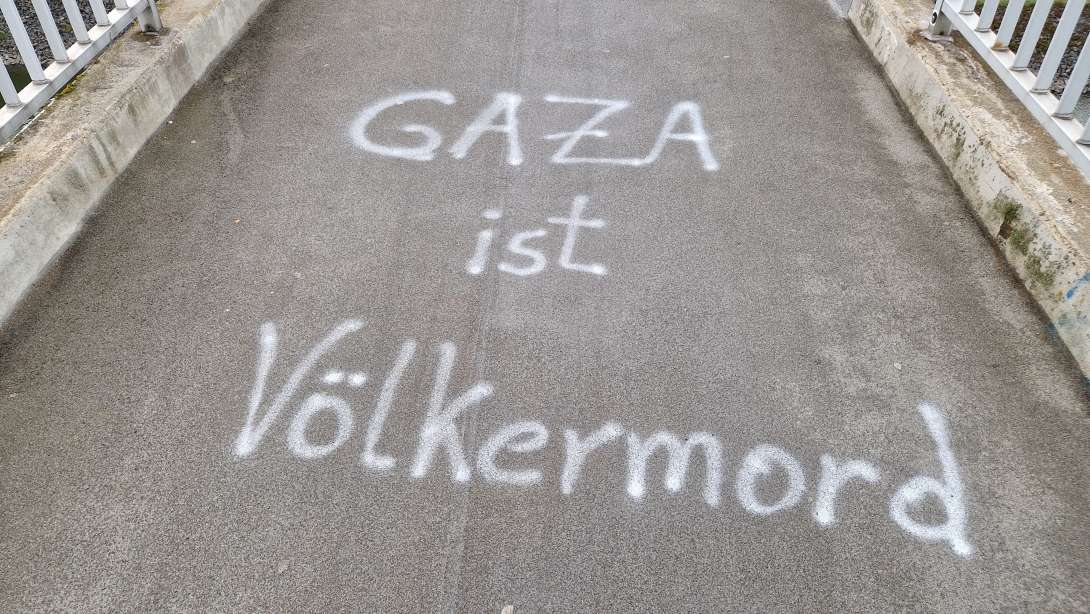 GAZA
ist
Völkermord